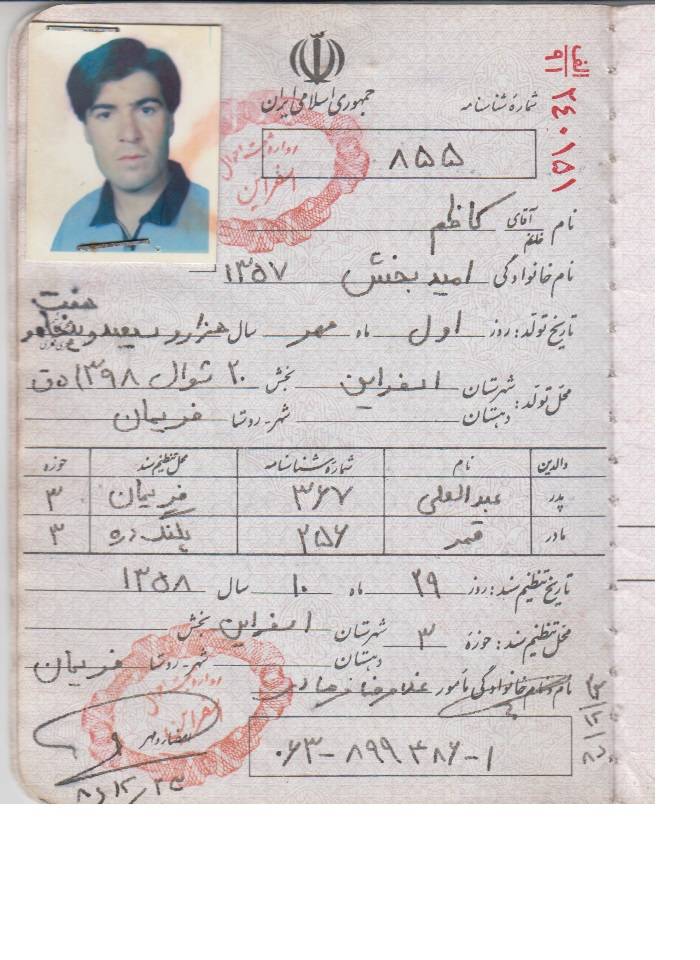 جمهوری اسلامی ایران
شمارهٔ شناسنامه
الف
۹۱
۲۴۰۱۵۱
۸۵۵
نام آقای خانم کاظم
نام خانوادگی امید بخش ۱۳۵۷
هفت
تاریخ تولد: روز اول ماه مهر سال هزار و سیصد و پنجاه و
محل تولد: شهرستان اسفراین بخش ۲۰ شوال ۱۳۹۸ ه ق
دهستان شهر-روستا فریمان
والدین نام شمارهٔ شناسنامه محل تنظیم سند حوزه
پدر عبدالعلی ۳۶۷ فریمان ۳
مادر قمر ۲۵۶ پلنگ دره ۳
تاریخ تنظیم سند: روز ۲۹ ماه ۱۰ سال ۱۳۵۸
محل تنظیم سند: حوزهٔ ۳ شهرستان اسفراین بخش
دهستان شهر-روستا فریمان
نام و نام خانوادگی مأمور غلامرضا
امضاء و مهر
۰۶۳-۸۹۹۴۸۶-۱
اداره ثبت احوال
اسفراین